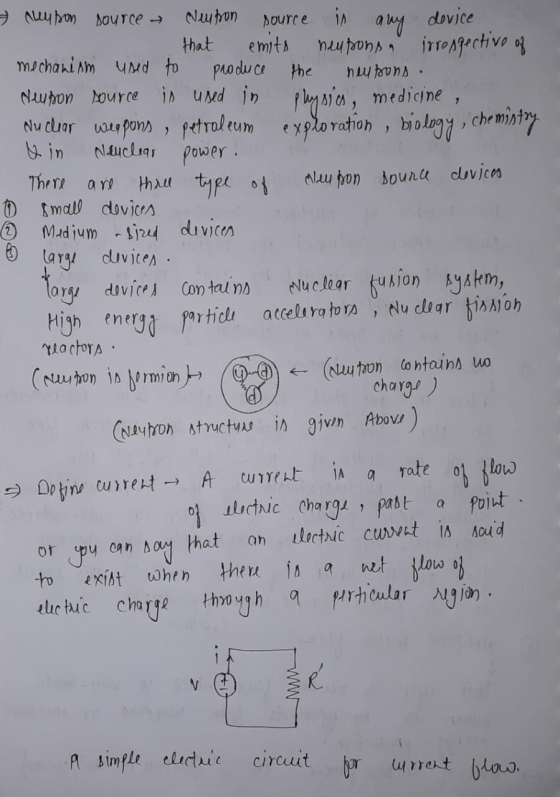 ⇒ Neutron source → Neutron source is any device
that emits neutrons, irrospective of
mechanism used to produce the neutrons.
Neutron source is used in physics, medicine,
Nuclear weapons, petroleum exploration, biology, chemistry
& in Neuclear power.
There are three type of Neutron source devices
① Small devices
② Medium-sized devices
③ large devices.
large devices contains Nuclear fusion system,
High energy particle accelerators, Nuclear fission
reactors.
(Neutron is fermion) → u d d ← (Neutron contains no
charge)
(Neutron structure is given Above)
⇒ Define current → A current is a rate of flow
of electric charge, past a point.
or you can say that an electric current is said
to exist when there is a net flow of
electric charge through a perticular region.
i
V + - R'
A simple electric circuit for current flow.